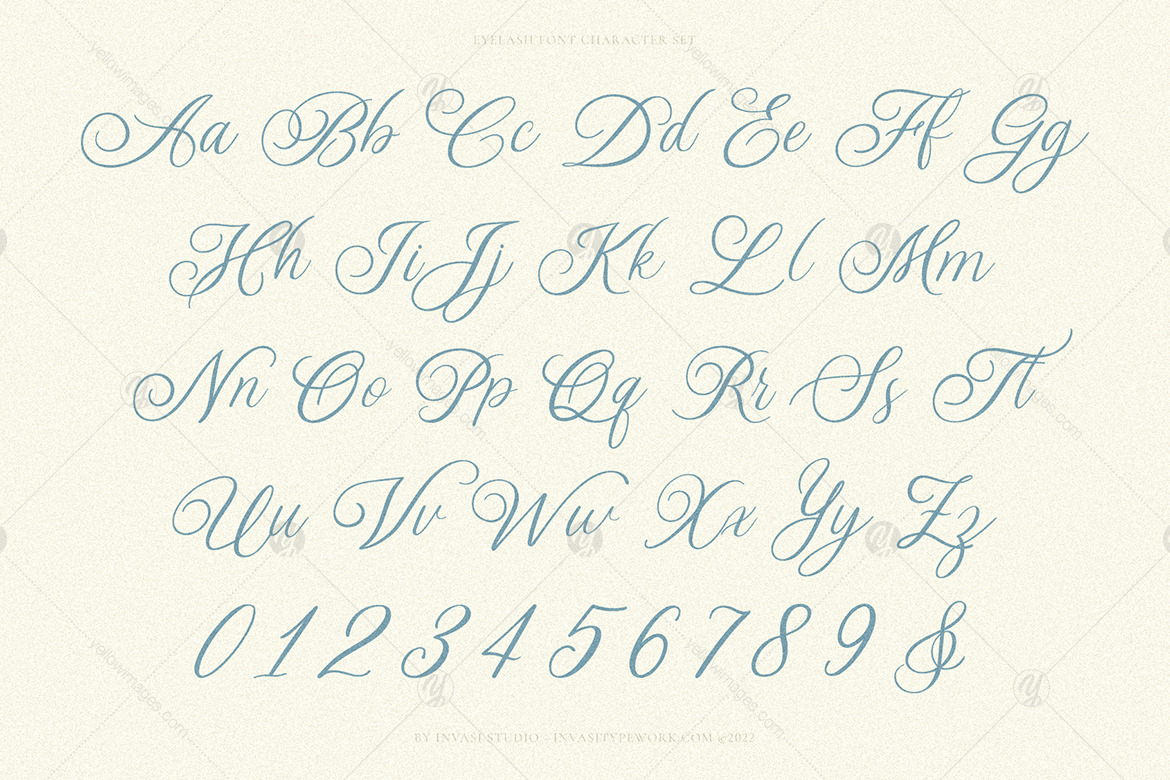 EYELASH FONT CHARACTER SET
Aa Bb Cc Dd Ee Ff Gg
Hh Ii Jj Kk Ll Mm
Nn Oo Pp Qq Rr Ss Tt
Uu Vv Ww Xx Yy Zz
0 1 2 3 4 5 6 7 8 9 &
BY INVASI STUDIO - INVASITYPEWORK.COM ©2022
yellowimages.com
yellowimages.com
yellowimages.com
yellowimages.com
yellowimages.com
yellowimages.com
yellowimages.com